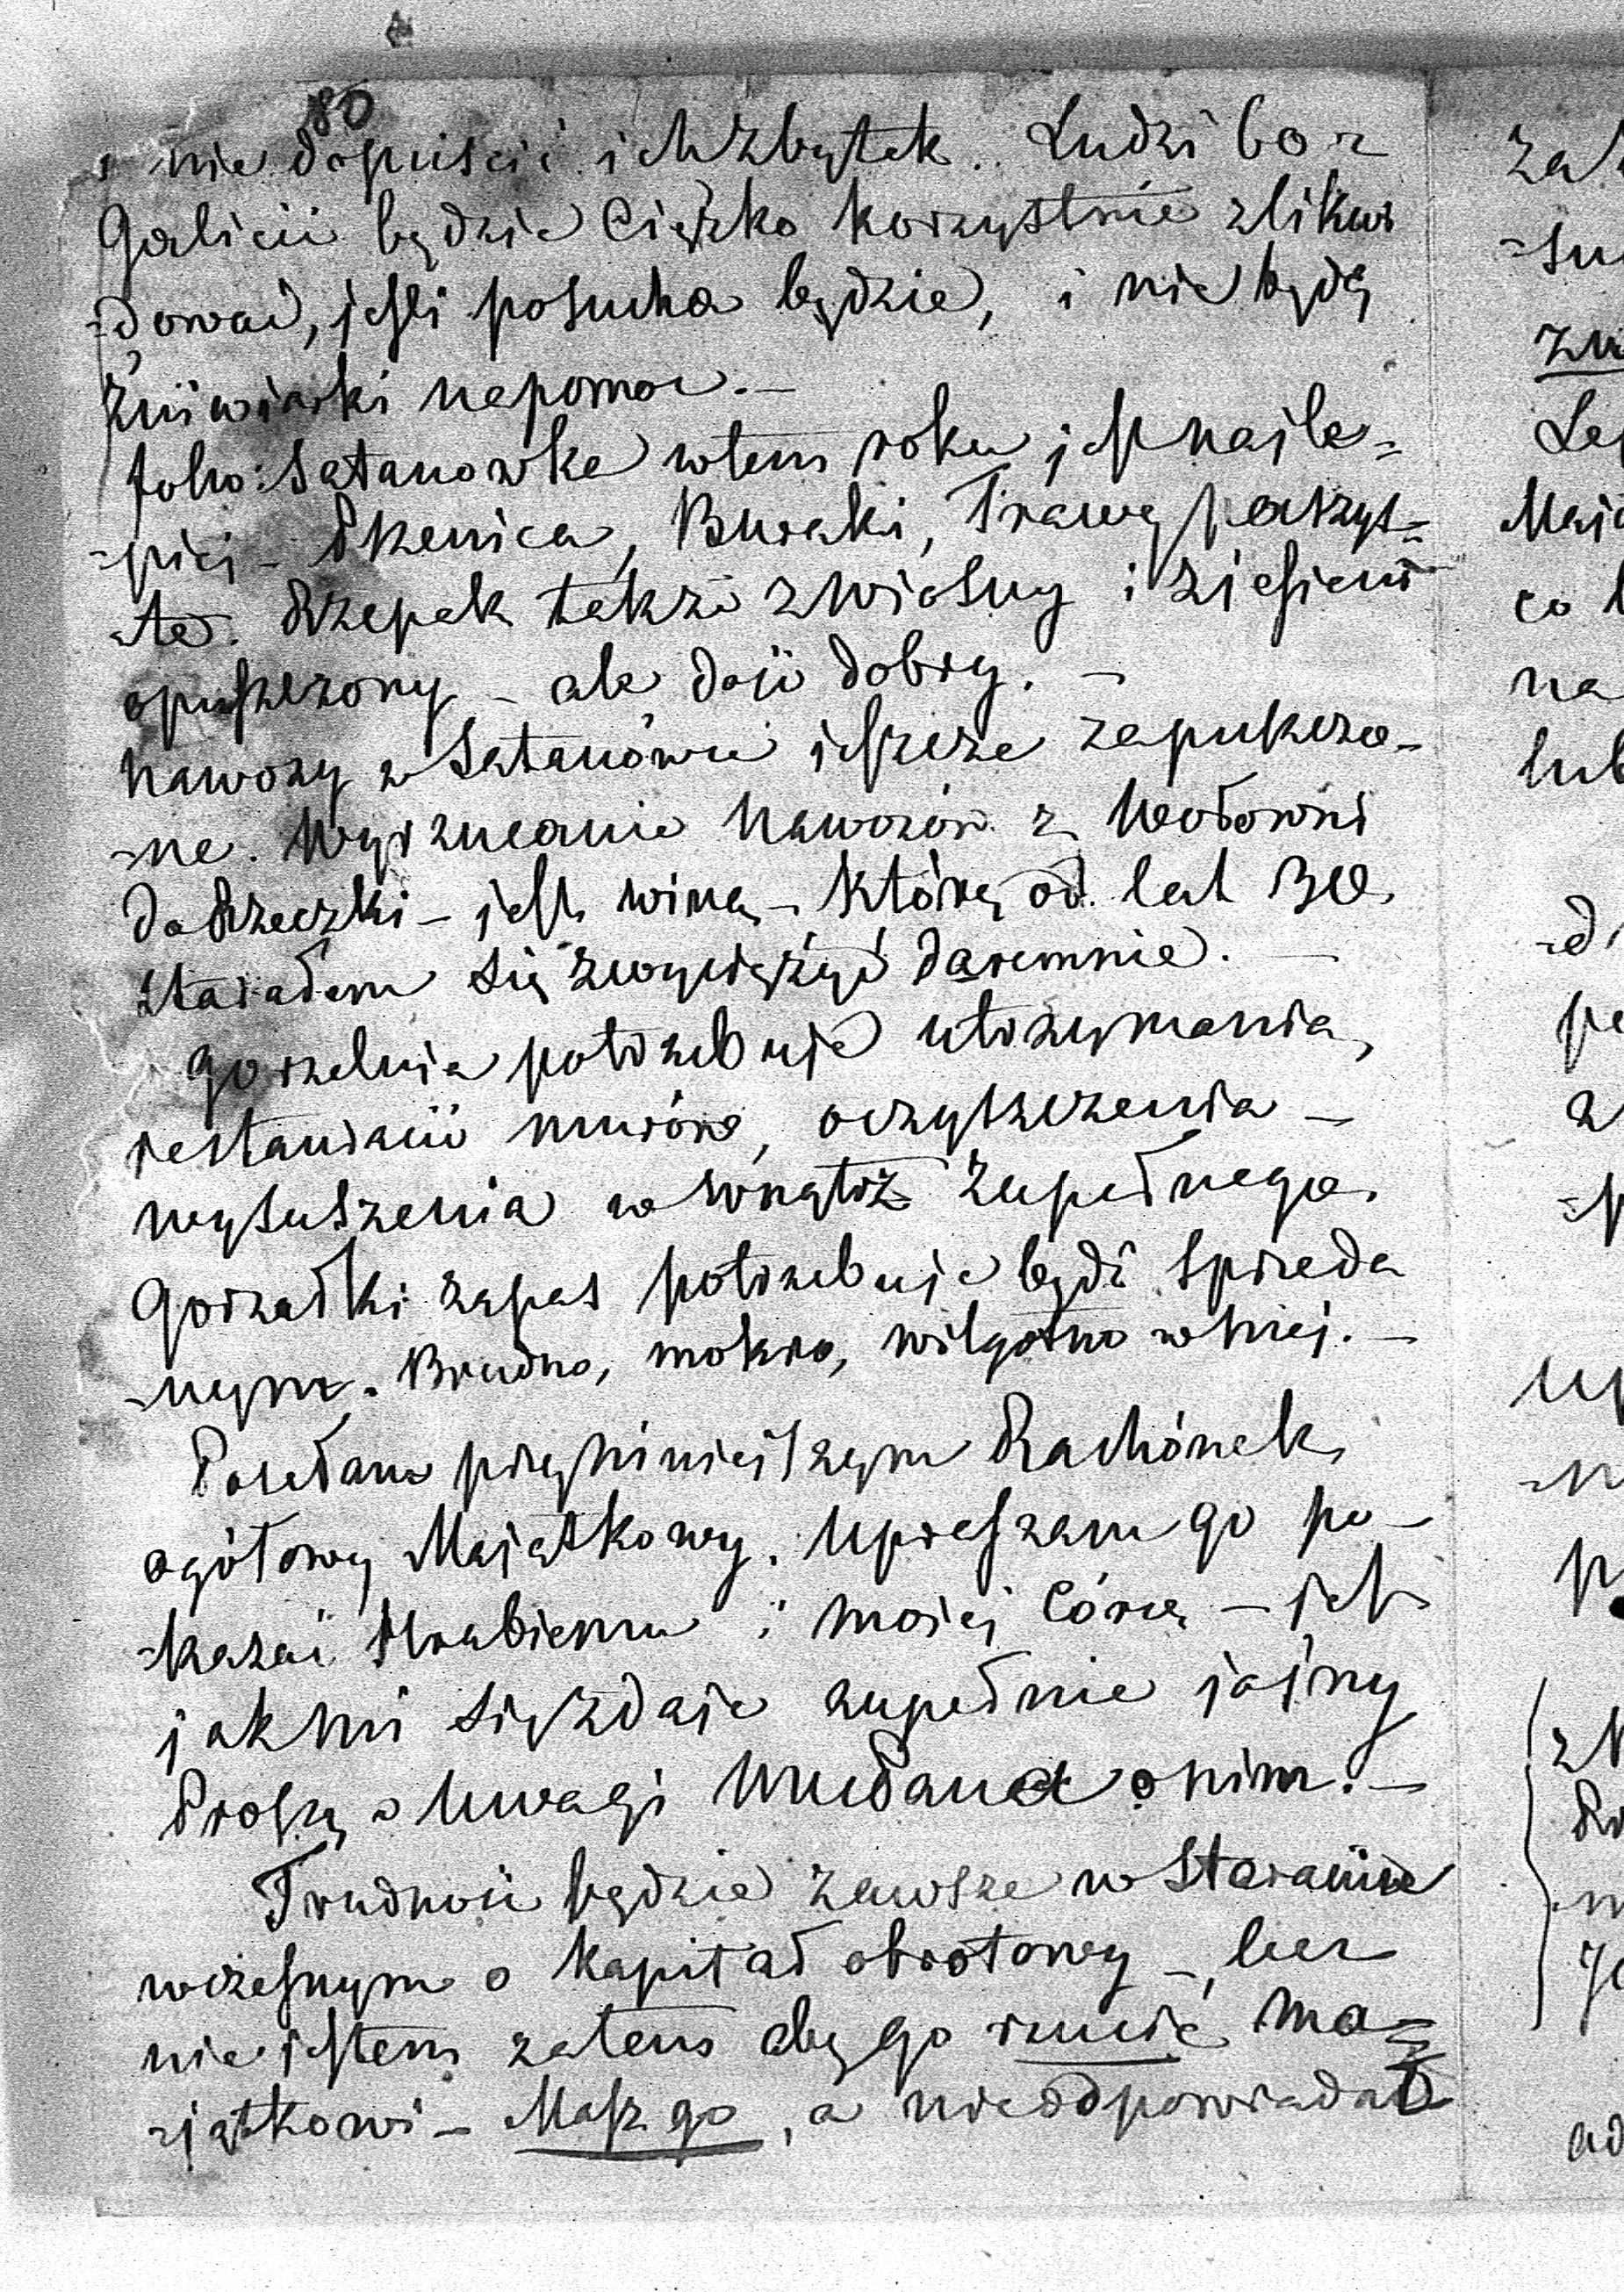 80
i nie dopuścić ich zbytek. Ludzi bo z
Galicii będzie Ciężko korzystnie zlikwi
-dować, jeśli posucha będzie, i nie będą
żniwiarki napomoc. —
folw: Satanowka wtem roku jest najle-
-piej — Pszenica, Buraki, Trawy
-te. Rzepak także z wiosny i z jesieni
opuszczony — ale dojii dobry. —
Nawozy w Satanówce jeszcze
-ne. Wyrzucanie Nawozów z Wołowni
do Rzeczki — jest winą — którą od lat 30.
starałem się zwyciężyć daremnie. —
Gorzelnia potrzebuje utrzymania,
restauracii murów, oczyszczenia —
wysuszenia wewnątrz zupełnego.
Gorzałki zapas potrzebuje bydź sprzeda
-nym. Brudno, mokro, wilgotno w niej. —
Posełam piękniniejszym Rachónek
ogółowy Majątkowy. Upraszam go po-
-kazać Hrabiemu i mojej Córce — jest
jak mi się zdaje zupełnie jasny
Proszę o Uwagi Mudana o nim. —
Trudność będzie zawsze w Staraniu
wczesnym o Kapitał obrotowy —, lecz
nie jestem zatem aby go rzucić ma-
-jątkowi — Masz go, a nieodpowiadał
za
-su
Le
co
na
lub
-d
pe
a
-p
up
-n
p
ad